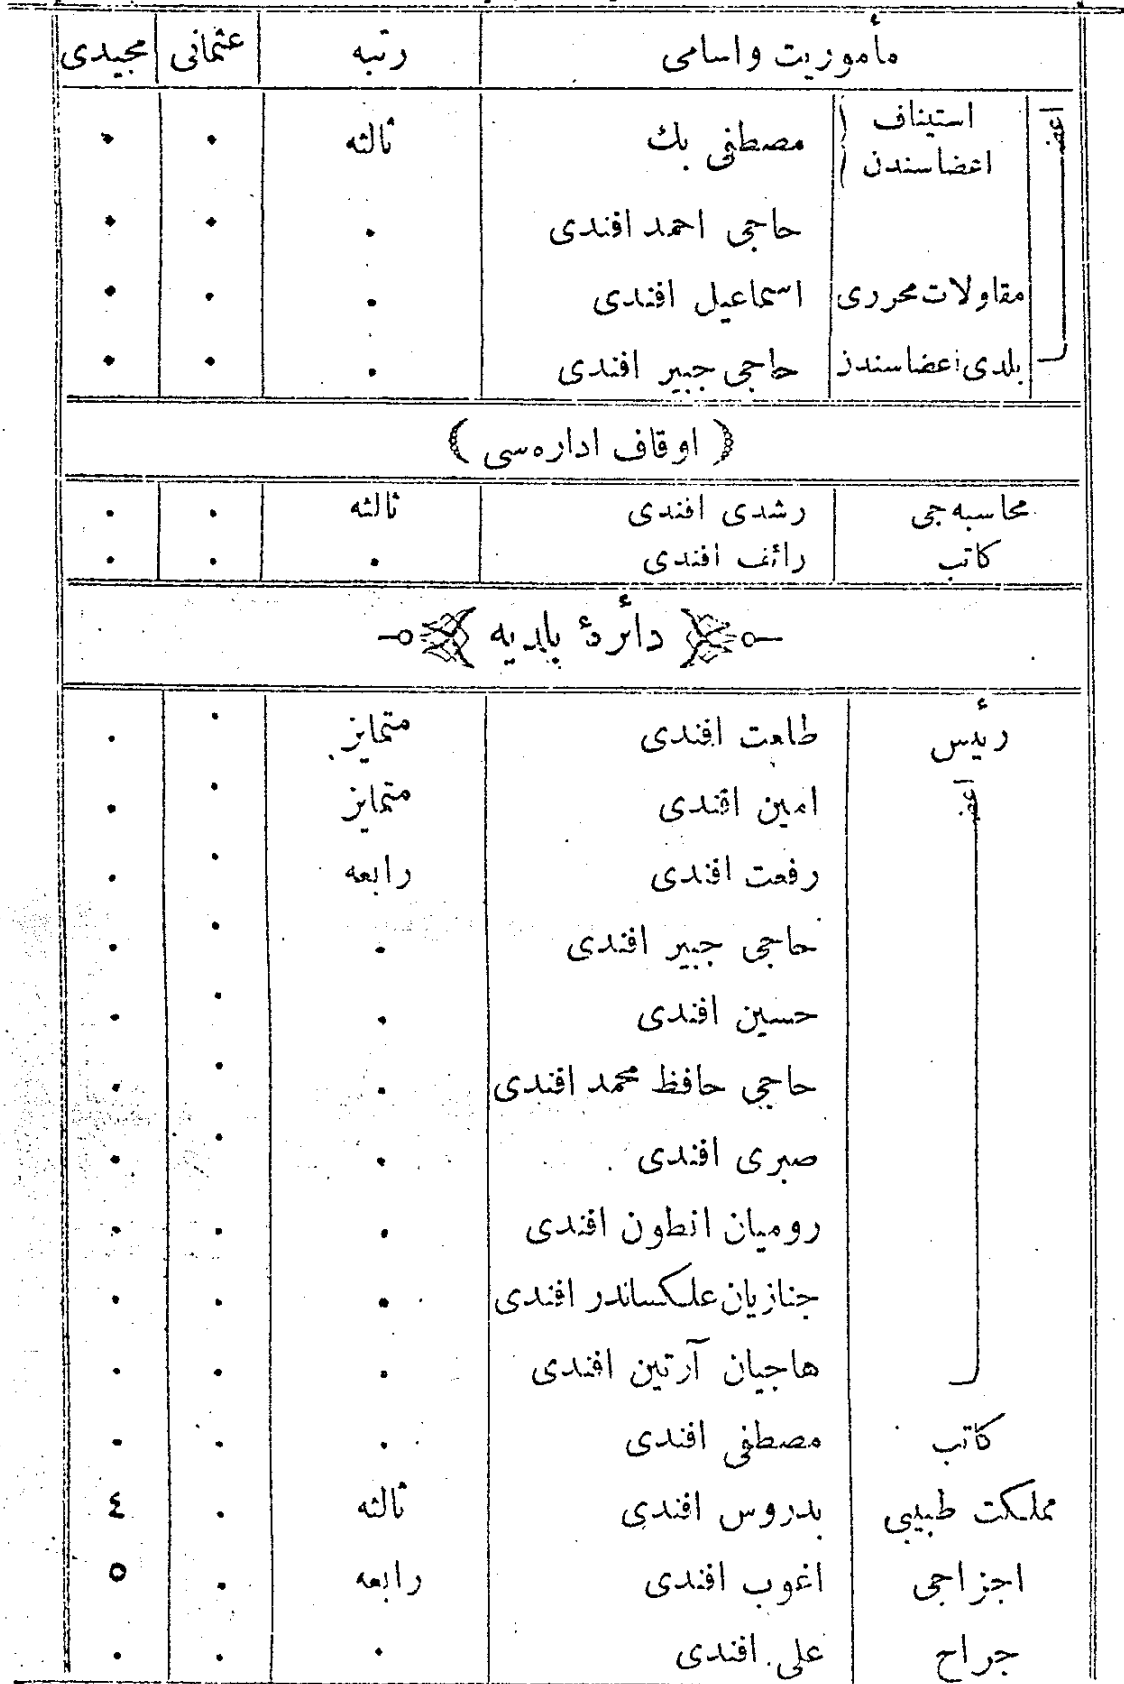 مأموریت و اسامی رتبه عثمانی مجیدی
اعضا استیناف اعضاسندن مصطفی بك ثالثه • •
حاجی احمد افندی • • •
مقاولات محرری اسماعیل افندی • • •
بلدی اعضاسندن حاجی جبیر افندی • • •
( اوقاف اداره‌سی )
محاسبه‌جی رشدی افندی ثالثه • •
كاتب رائف افندی • • •
دائرۀ بلدیه
رئیس طلعت افندی متمایز • •
اعضا امین افندی متمایز • •
رفعت افندی رابعه • •
حاجی جبیر افندی • • •
حسین افندی • • •
حاجی حافظ محمد افندی • • •
صبری افندی • • •
رومیان انطون افندی • • •
جنازیان علكساندر افندی • • •
هاجیان آرتین افندی • • •
كاتب مصطفی افندی • • •
مملكت طبیبی بدروس افندی ثالثه • ٤
اجزاجی اغوب افندی رابعه • ٥
جراح علی افندی • • •